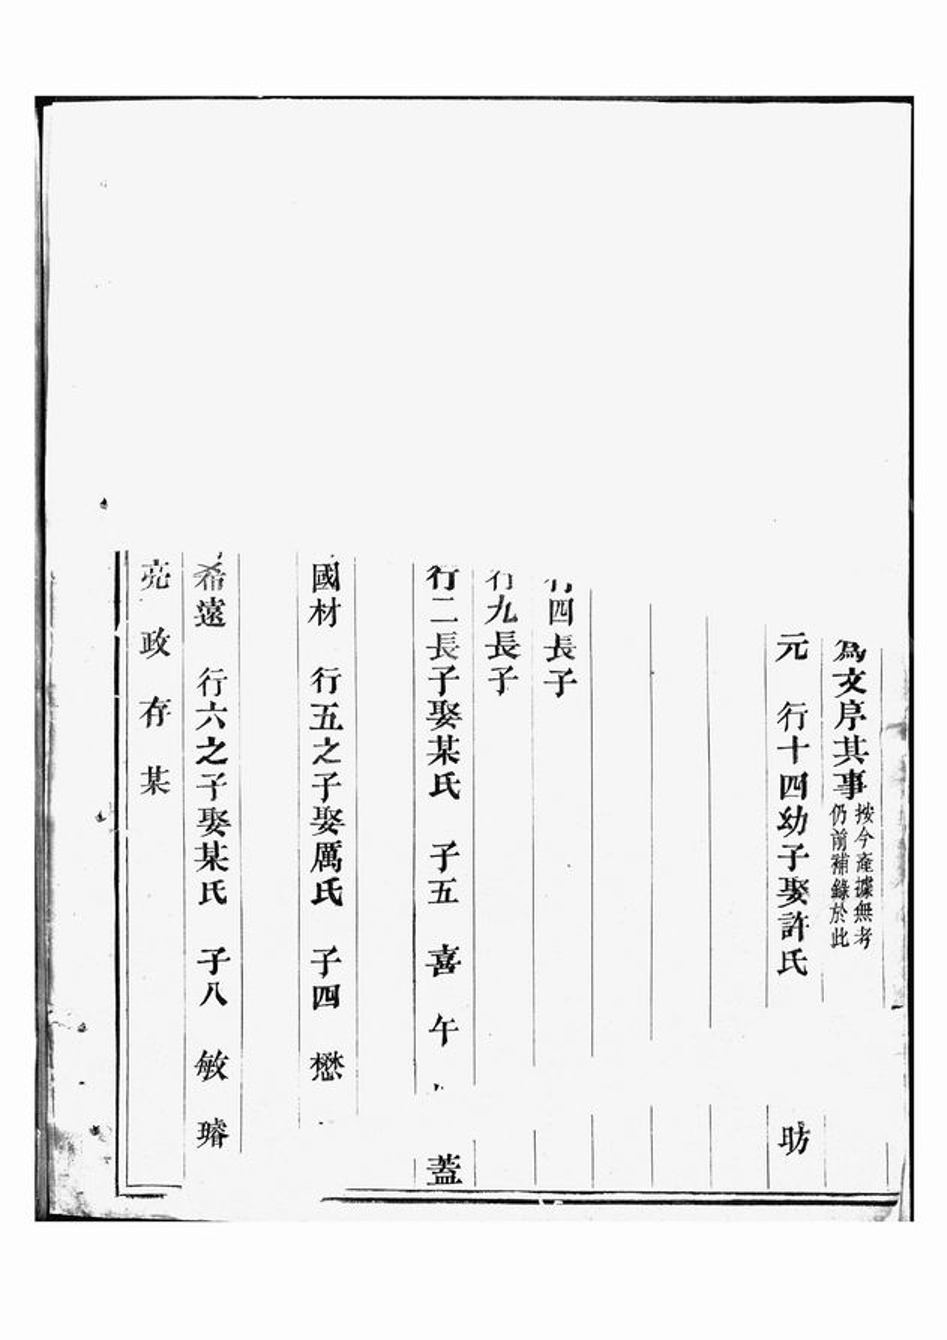 為文序其事按今產據無考仍前補錄於此
元 行十四幼子娶許氏 昉
行四長子
行九長子
行二長子娶某氏 子五 喜 午 蓋
國材 行五之子娶厲氏 子四 懋
希遠 行六之子娶某氏 子八 敏 璿
亮 政 存 某